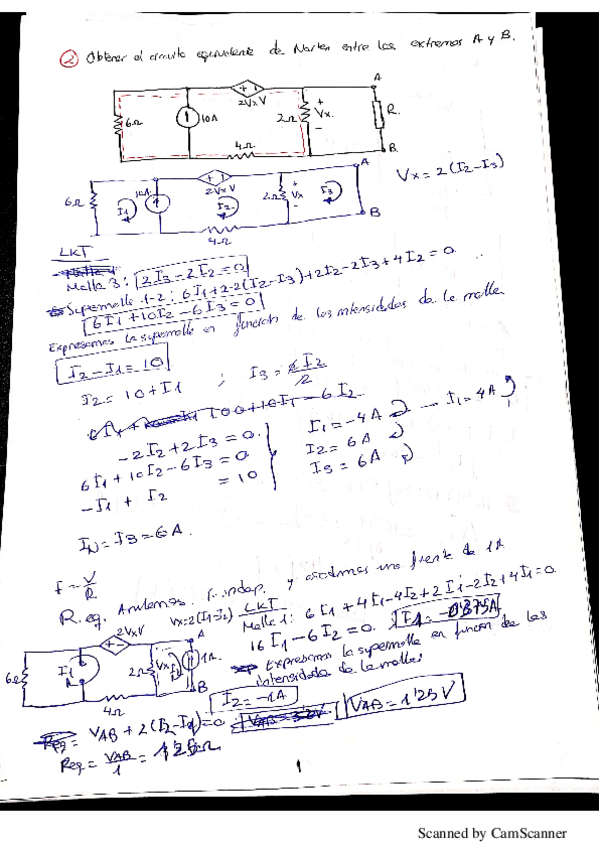 2 Obtener el circuito equivalente de Norton entre los extremos A y B.
A
+ -
2Vx V
6Ω
10A
2Ω
+
Vx
-
R.
4Ω
B
A
2Vx V
6Ω
I1
I2
2Ω
+
Vx
-
I3
B
4Ω
Vx = 2(I2-I3)
LKT
Malla 3: 2I3-2I2=0
Supermalla 1-2: 6I1+2·2(I2-I3)+2I2-2I3+4I2=0
6I1+10I2-6I3=0
Expresamos la supermalla en función de las intensidades de la malla
I2-I1=10
I2=10+I1 ; I3=
-2I2+2I3=0
6I1+10I2-6I3=0
-I1+I2=10
I1=-4A
I1=4A
I2=6A
I3=6A
IN=I3=6A.
I=V/R
R.eq. Anulamos f. indep. y escogemos una fuente de 1A
Vx=2(I1-I2)
LKT
Malla 1: 6I1+4I1-4I2+2I1-2I2+4I1=0
16I1-6I2=0.
I1=-0'375A
Expresamos la supermalla en función de las
intensidades de la malla:
I2=-1A
2VxV
A
6Ω
I1
2Ω
Vx
1A
B
4Ω
VAB+2(I2-I1)=0
VAB=1'25V
Req=VAB/1=1'25Ω
1
Scanned by CamScanner